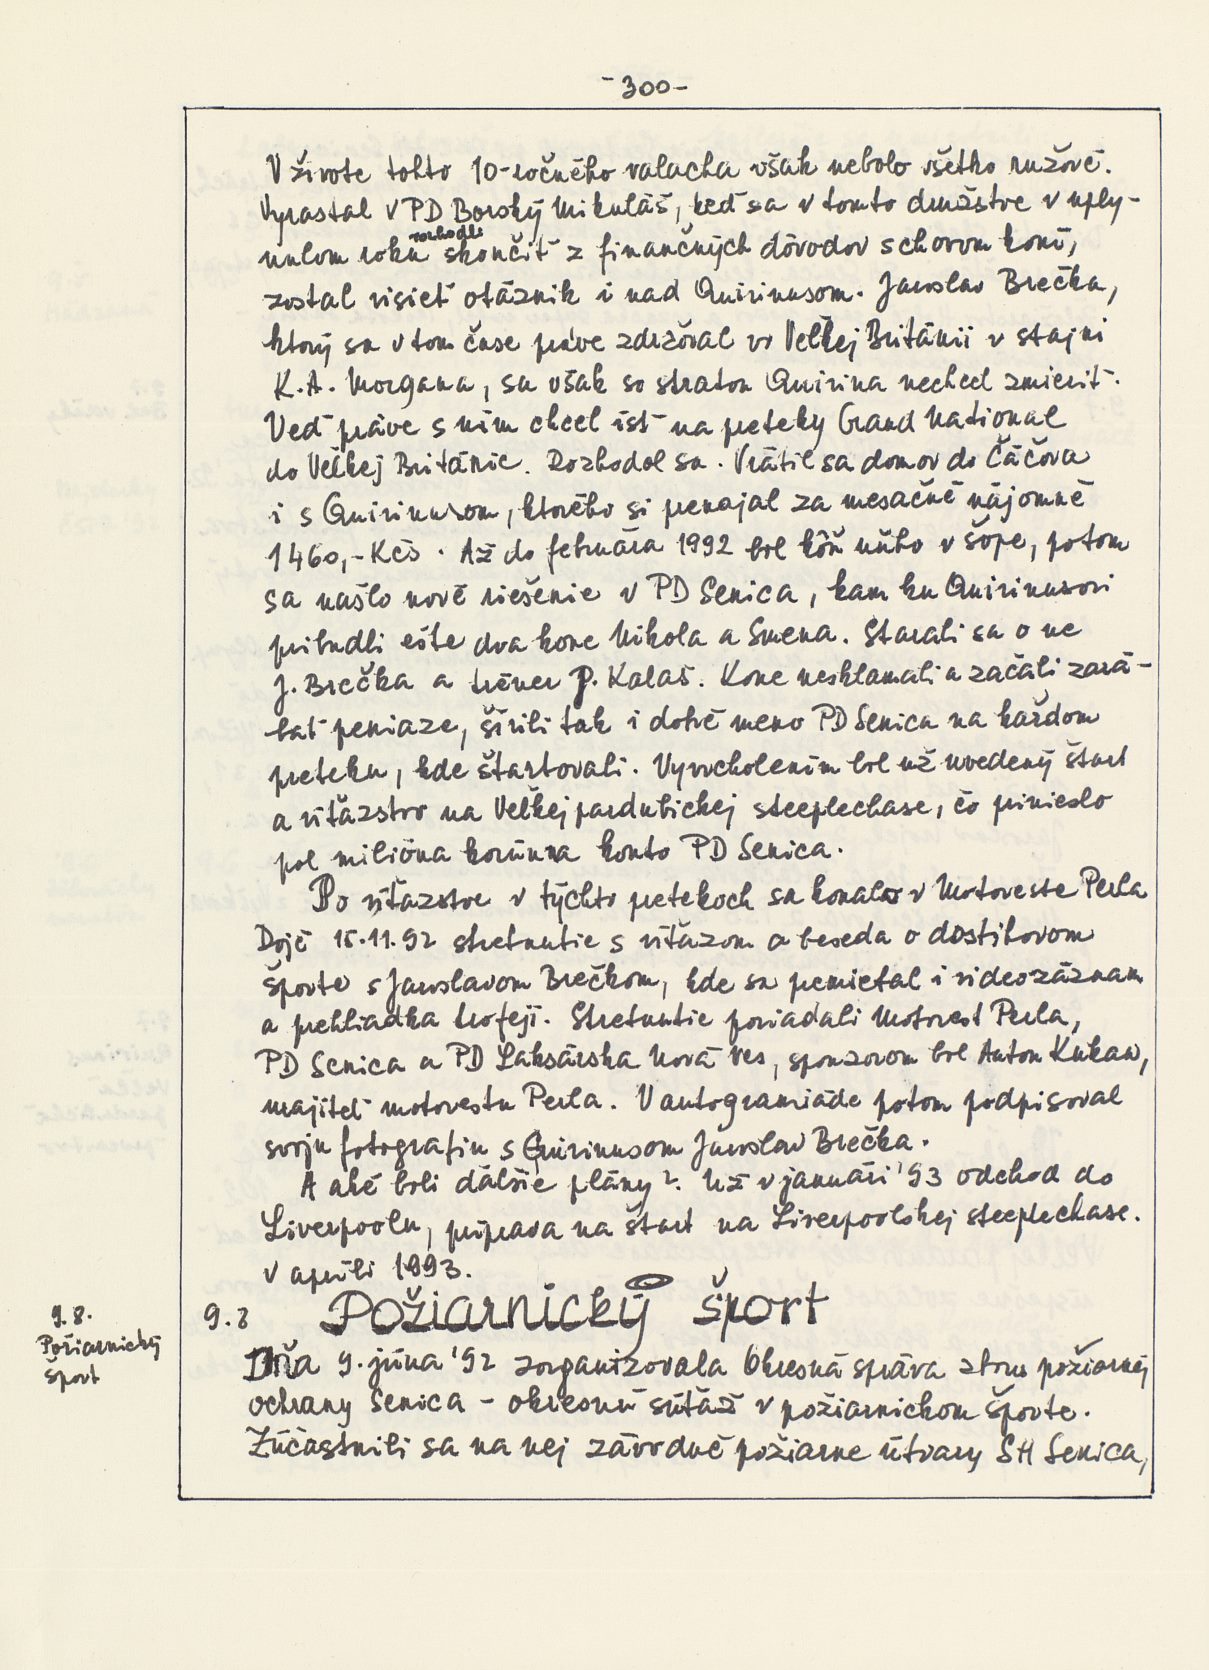 -300-
V živote tohto 10-ročného valacha však nebolo všetko ružové.
Vyrastal v PD Borský Mikuláš, keď sa v tomto družstve v uply-
nulom roku rozhodli skončiť z finančných dôvodov s chovom koní,
zostal visieť otáznik i nad Quirinusom. Jaroslav Brečka,
ktorý sa v tom čase práve zdržoval vo Veľkej Británii v stajni
K.A. Morgana, sa však so stratou Quirina nechcel zmieriť.
Veď práve s ním chcel ísť na preteky Grand National
do Veľkej Británie. Rozhodol sa. Vrátil sa domov do Čáčova
i s Quirinusom, ktorého si prenajal za mesačné nájomné
1460,- Kčs. Až do februára 1992 bol kôň uňho v šope, potom
sa našlo nové riešenie v PD Senica, kam ku Quirinusovi
pribudli ešte dva kone Nikola a Smena. Starali sa o ne
J. Brečka a tréner P. Kalaš. Kone nesklamali a začali zará-
bať peniaze, šírili tak i dobré meno PD Senica na každom
preteku, kde štartovali. Vyvrcholením bol už uvedený štart
a víťazstvo na Veľkej pardubickej steeplechase, čo prinieslo
pol milióna korún na konto PD Senica.
Po víťazstve v týchto pretekoch sa konalo v Motoreste Perla
Dojč 15.11.92 stretnutie s víťazom a beseda o dostihovom
športe s Jaroslavom Brečkom, kde sa premietal i videozáznam
a prehliadka trofejí. Stretnutie poriadali Motorest Perla,
PD Senica a PD Lakšárska Nová Ves, sponzorom bol Anton Kukan,
majiteľ motorestu Perla. V autogramiáde potom podpisoval
svoju fotografiu s Quirinusom Jaroslav Brečka.
A aké boli ďalšie plány?. Už v januári '93 odchod do
Liverpoolu, príprava na štart na Liverpoolskej steeplechase.
v apríli 1993.
9.8.
Požiarnický
šport
9.8 Požiarnický šport
Dňa 9. júna '92 zorganizovala Okresná správa zboru požiarnej
ochrany Senica - okresnú súťaž v požiarnickom športe.
Zúčastnili sa na nej závodné požiarne útvary SH Senica,